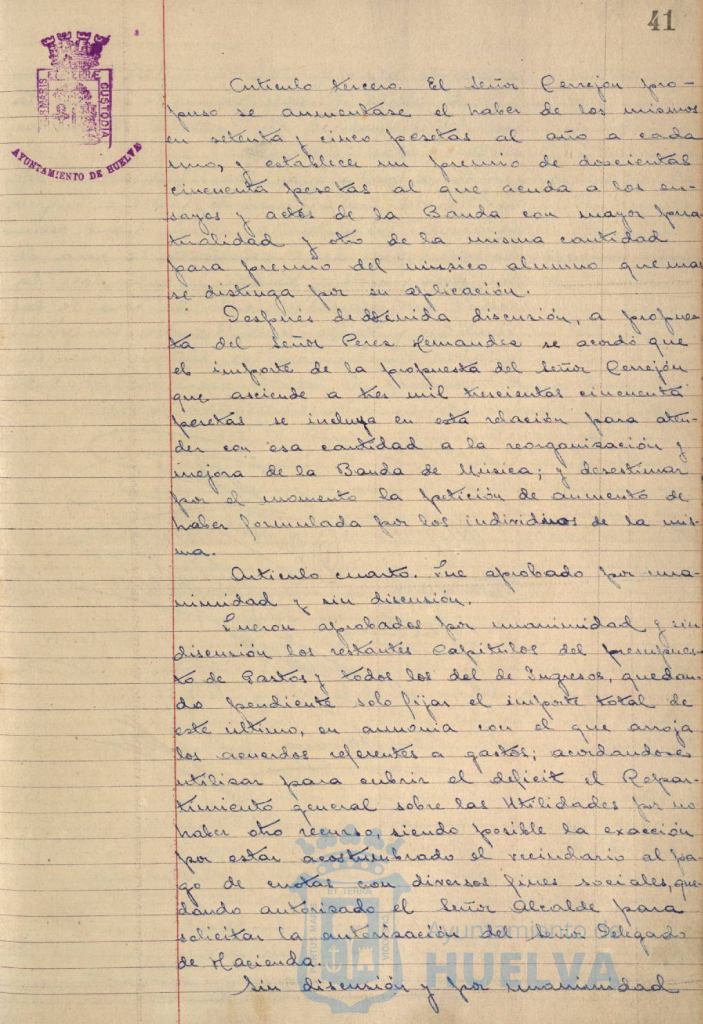 41
PORTUS MARIS
ET TERRAE
CUSTODIA
AYUNTAMIENTO DE HUELVA
Artículo tercero. El Señor Cerrejón pro-
puso se aumentase el haber de los mismos
en setenta y cinco pesetas al año a cada
uno, y establecer un premio de doscientas
cincuenta pesetas al que acuda a los en-
sayos y actos de la Banda con mayor pun-
tualidad y otro de la misma cantidad
para premio del músico alumno que mas
se distinga por su aplicación.
Después de detenida discusión, a propues-
ta del Señor Perez Hernandez se acordó que
el importe de la propuesta del Señor Cerrejón
que asciende a tres mil trescientas cincuenta
pesetas se incluya en esta relación para aten-
der con esa cantidad a la reorganización y
mejora de la Banda de Música; y desestimar
por el momento la petición de aumento de
haber formulada por los individuos de la mis-
ma.
Artículo cuarto. Fue aprobado por una-
nimidad y sin discusión.
Fueron aprobados por unanimidad y sin
discusión los restantes Capítulos del presupues-
to de Gastos y todos los del de Ingresos, quedan-
do pendiente solo fijar el importe total de
este último, en armonía con el que arroja
los acuerdos referentes a gastos; acordandose
utilizar para cubrir el deficit el Repar-
timiento general sobre las Utilidades por no
haber otro recurso, siendo posible la exacción
por estar acostumbrado el vecindario al pa-
go de cuotas con diversos fines sociales, que-
dando autorizado el Señor Alcalde para
solicitar la autorización del Señor Delegado
de Hacienda.
Sin discusión y por unanimidad
Ayuntamiento de
HUELVA